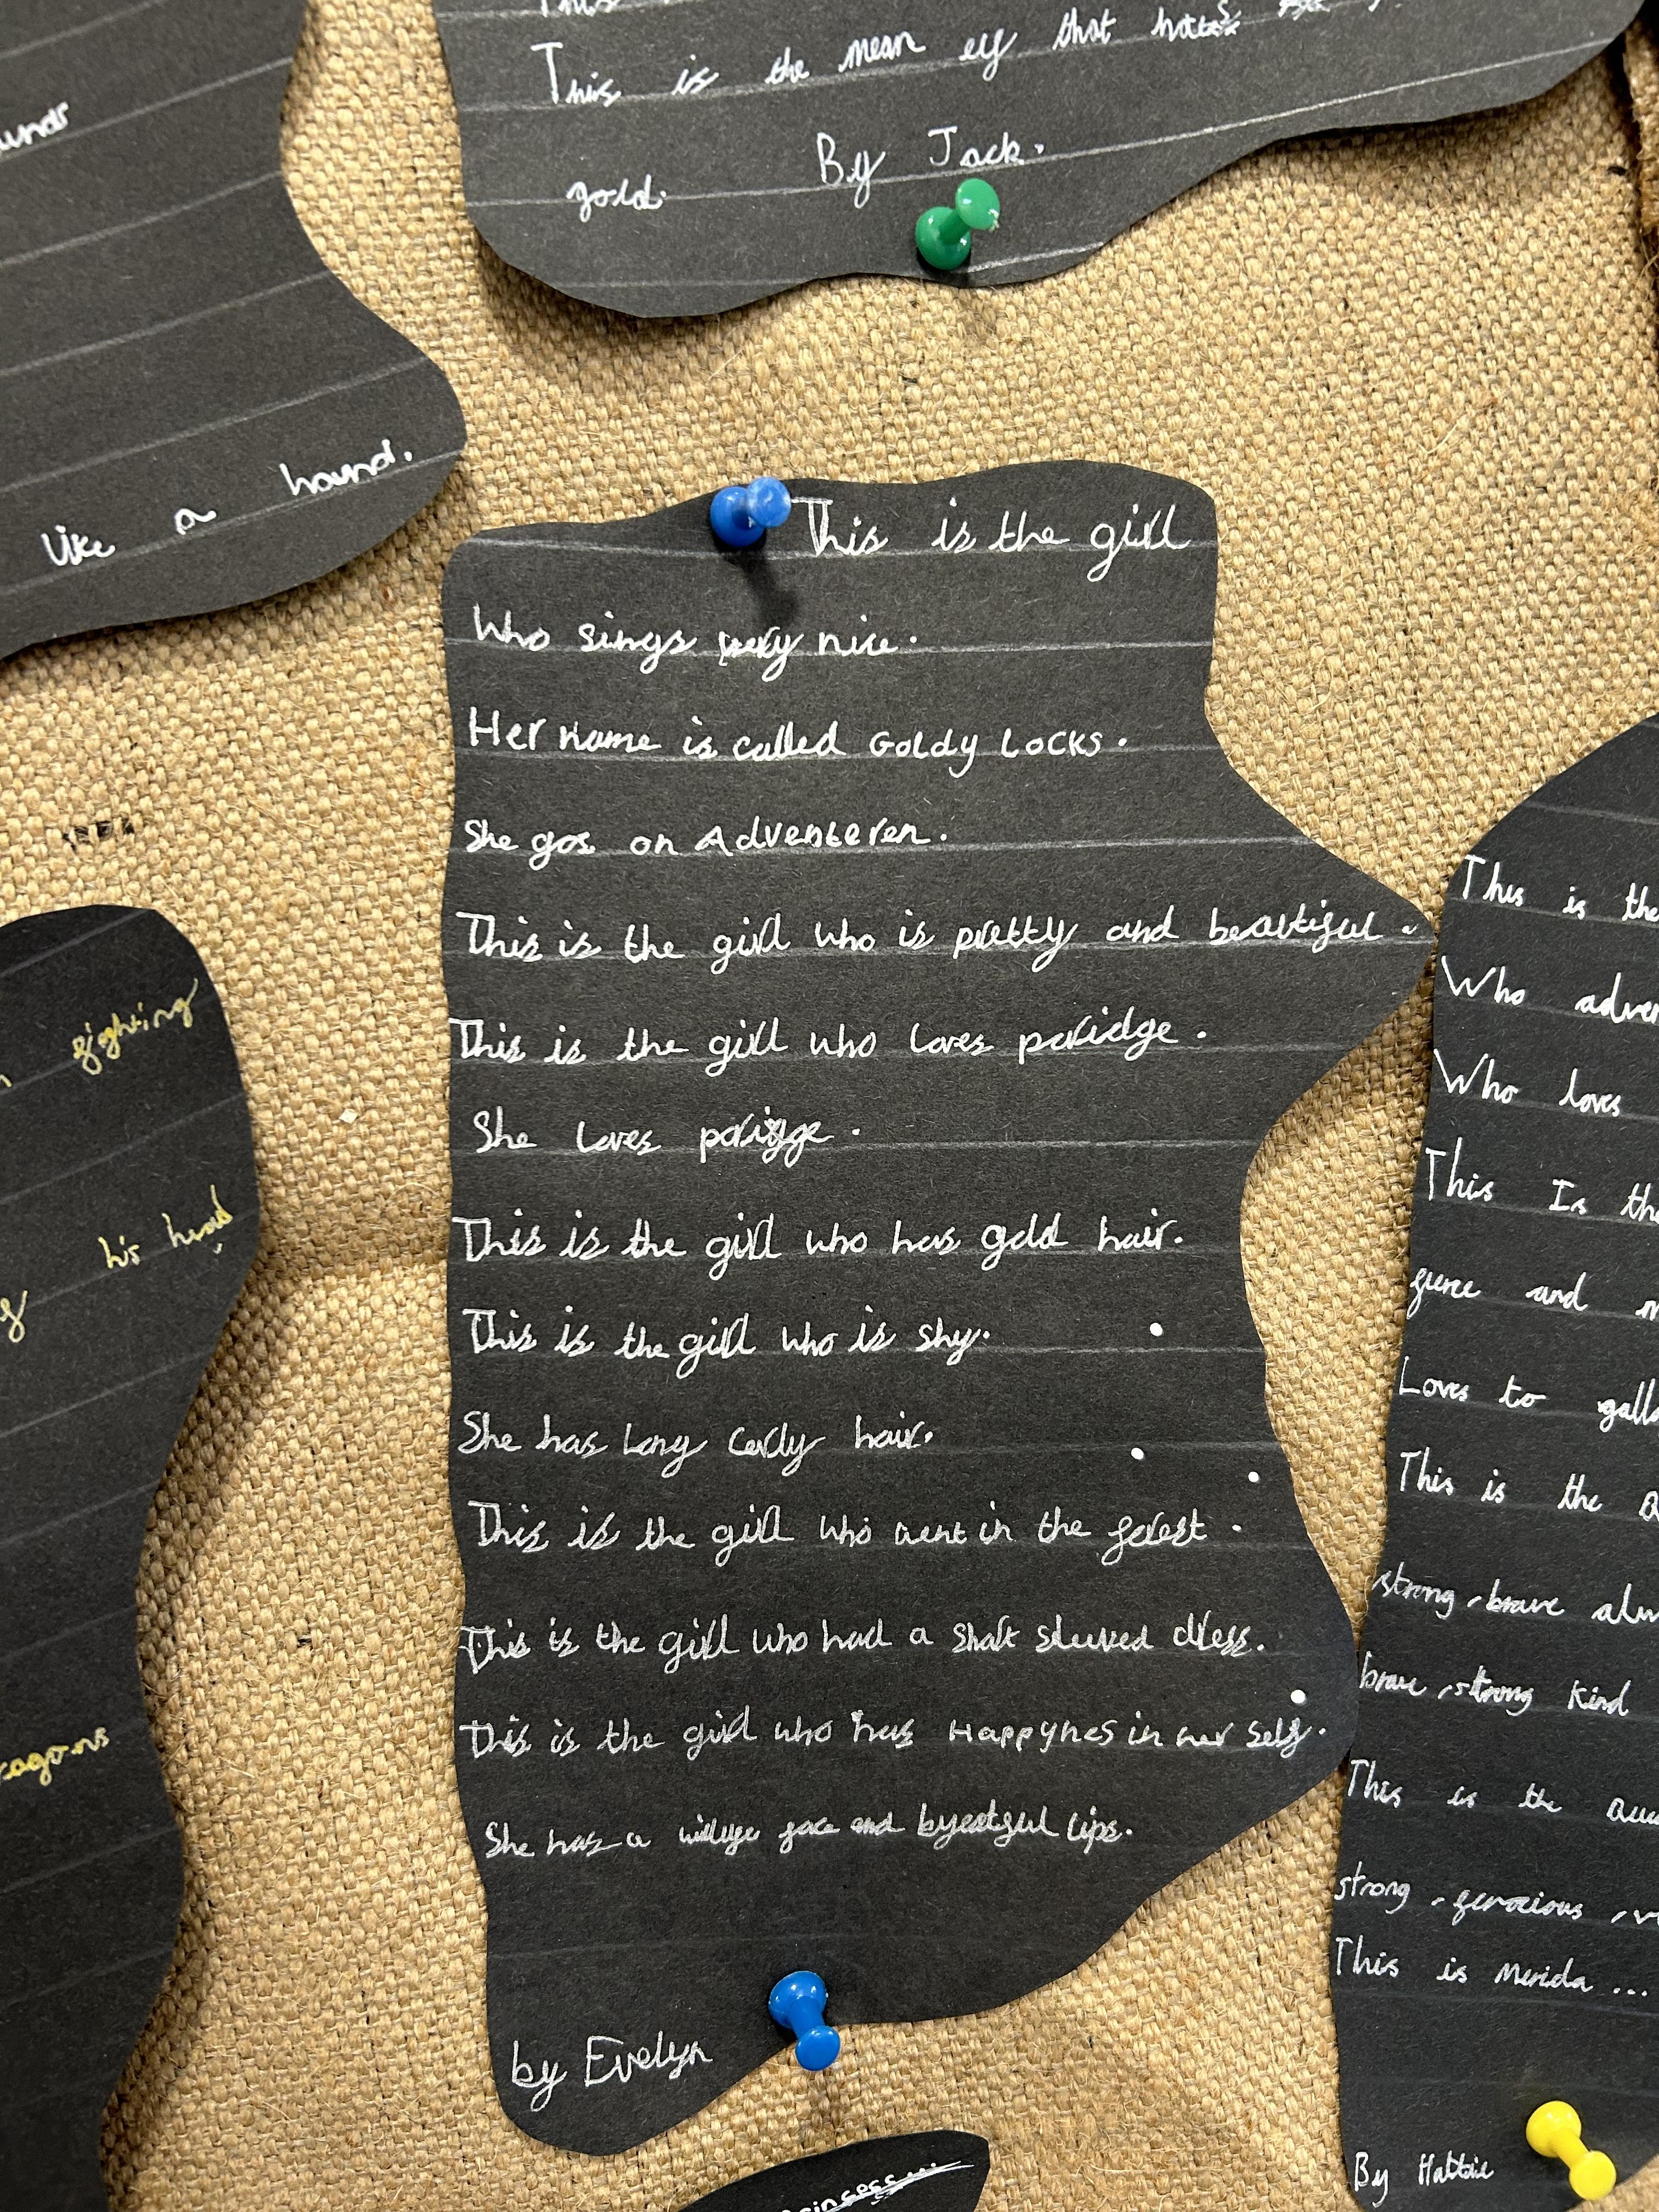 This is the mean elf that hates
gold. By Jack.
like a hound.
This is the girl
Who sings very nice.
Her name is called Goldy Locks.
She gos on Adventeren.
This is the girl who is pretty and beautiful.
This is the girl who loves poridge.
She loves poridge.
This is the girl who has gold hair.
This is the girl who is shy.
She has long curly hair.
This is the girl who went in the forest.
This is the girl who had a shalt sleeved dless.
This is the girl who has Happynes in her self.
She has a face and byeatful lips.
by Evelyn
fighting
his head
This is the
Who
Who loves
This Is
and
Loves to
This is the
strong, brave
brave, strong kind
This is the
strong, ferocious,
This is Merida...
By Hattie